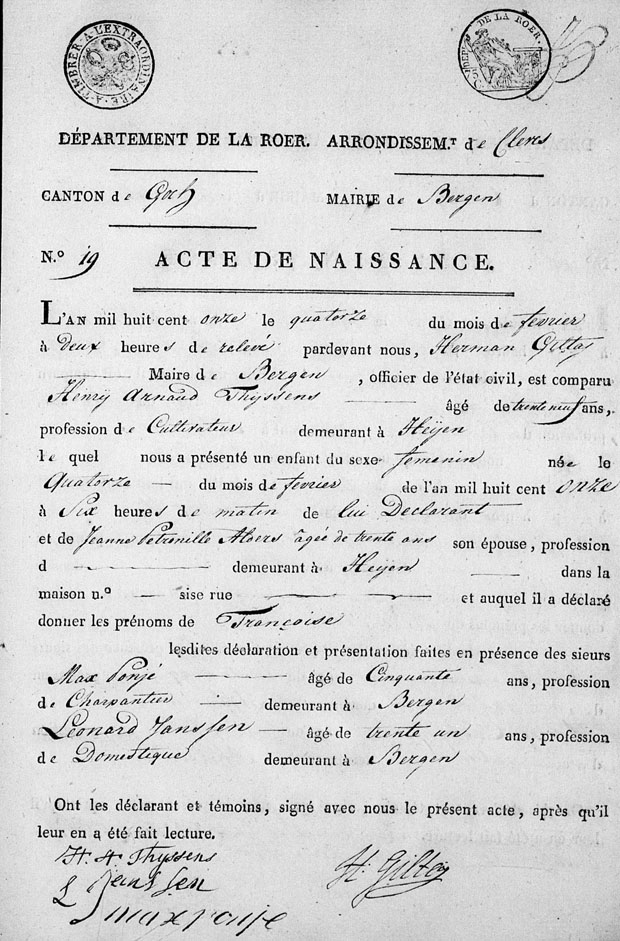 A TIMBRER A L'EXTRAORDINAIRE
DEPT DE LA ROER.
DÉPARTEMENT DE LA ROER. ARRONDISSEM.T de Cleves
CANTON de Goch MAIRIE de Bergen
N.º 19 ACTE DE NAISSANCE.
L'AN mil huit cent onze le quatorze du mois de fevrier
à deux heures de relevé pardevant nous, Herman Giltay
Maire de Bergen, officier de l'état civil, est comparu
Henrÿ Arnaud Thyssens âgé de trente neuf ans,
profession de Cultivateur demeurant à Heÿen
le quel nous a présenté un enfant du sexe femenin née le
Quatorze du mois de fevrier de l'an mil huit cent onze
à Six heures de matin de lui Declarant
et de Jeanne Petronille Aloers agée de trente ans son épouse, profession
d demeurant à Heÿen dans la
maison n.º sise rue et auquel il a déclaré
donner les prénoms de Françoise
lesdites déclaration et présentation faites en présence des sieurs
Max Ponjé âgé de Cinquante ans, profession
de Charpantier demeurant à Bergen
Leonard Janssen âgé de trente un ans, profession
de Domestique demeurant à Bergen
Ont les déclarant et témoins, signé avec nous le présent acte, après qu'il
leur en a été fait lecture.
H. A. Thyssens
L Janssen H. Giltay
max ponje